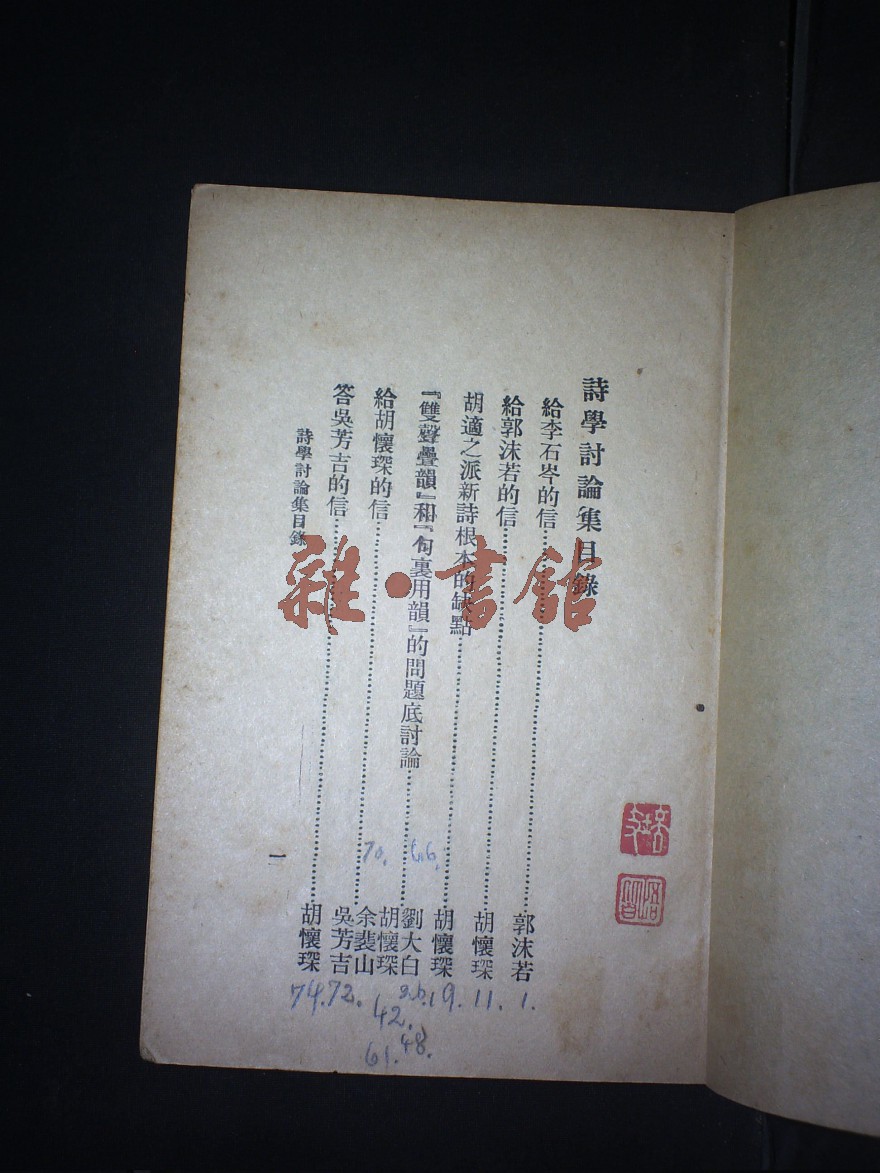 詩學討論集目錄
給李石岑的信……郭沫若
給郭沫若的信……胡懷琛
胡適之派新詩根本的缺點……胡懷琛
『雙聲疊韻』和『句裏用韻』的問題底討論……劉大白
胡懷琛
余裴山
給胡懷琛的信……吳芳吉
答吳芳吉的信……胡懷琛
詩學討論集目錄
一
70. 66.
1.
11.
19.
42.
48.
61.
72.
74.
雜·書館